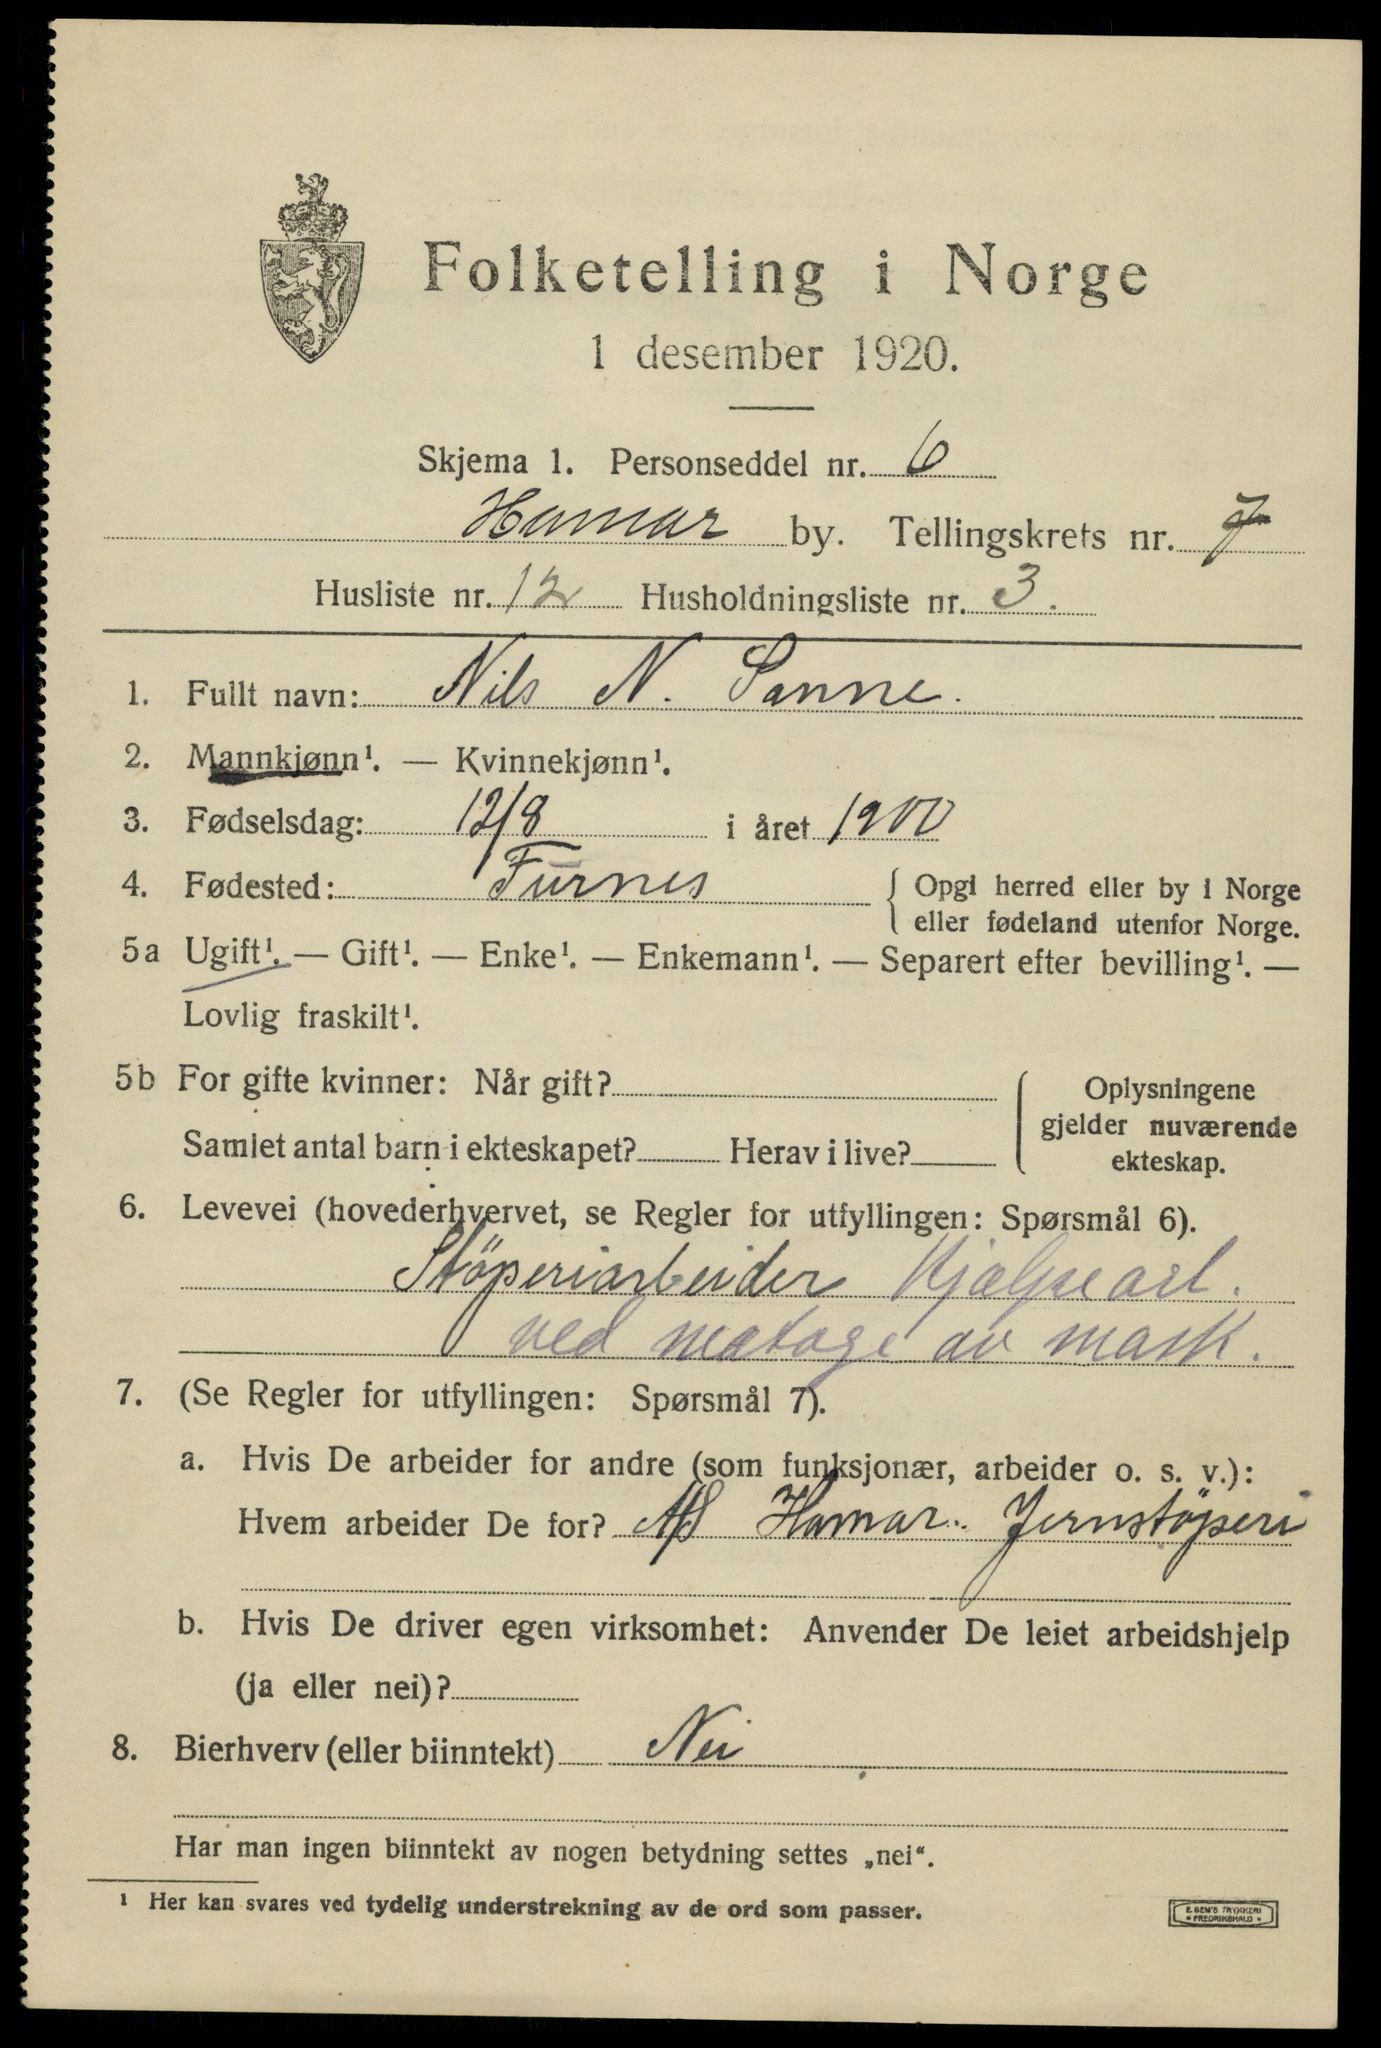 Folketelling i Norge
1 desember 1920.
Skjema 1. Personseddel nr. 6
Hamar by. Tellingskrets nr. 7
Husliste nr. 12 Husholdningsliste nr. 3.
1. Fullt navn: Nils N. Sanne.
2. Mannkjønn¹. — Kvinnekjønn¹.
3. Fødselsdag: 12/8 i året 1900
4. Fødested: Furnes { Opgi herred eller by i Norge
eller fødeland utenfor Norge.
5a Ugift¹. — Gift¹. — Enke¹. — Enkemann¹. — Separert efter bevilling¹. —
Lovlig fraskilt¹.
5b For gifte kvinner: Når gift? { Oplysningene
gjelder nuværende
Samlet antal barn i ekteskapet? Herav i live? ekteskap.
6. Levevei (hovederhvervet, se Regler for utfyllingen: Spørsmål 6).
Stöperiarbeider Hjælpearb.
ved av mask.
7. (Se Regler for utfyllingen: Spørsmål 7).
a. Hvis De arbeider for andre (som funksjonær, arbeider o. s. v.):
Hvem arbeider De for? A/S Hamar Jernstöperi
b. Hvis De driver egen virksomhet: Anvender De leiet arbeidshjelp
(ja eller nei)?
8. Bierhverv (eller biinntekt) Nei
Har man ingen biinntekt av nogen betydning settes „nei“.
¹ Her kan svares ved tydelig understrekning av de ord som passer.
E. SEM'S TRYKKERI
• FREDRIKSHALD •